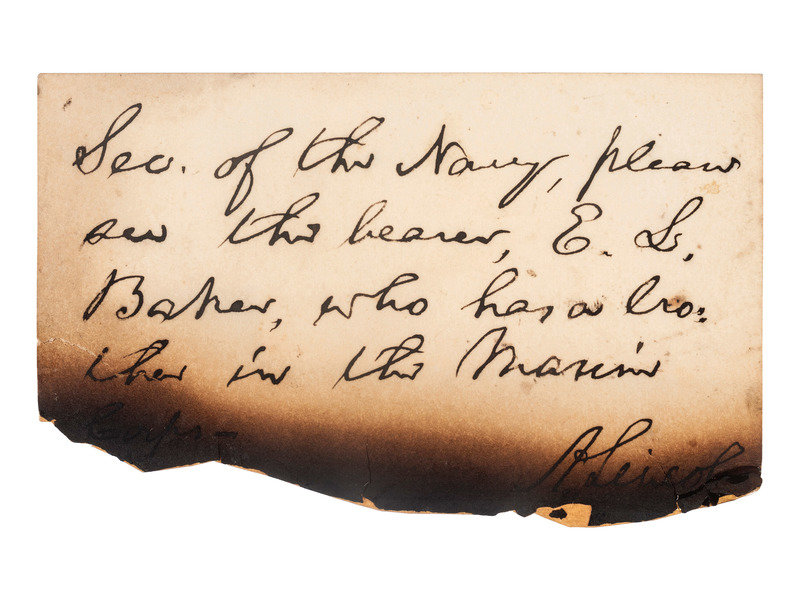 Sec. of the Navy, please
see the bearer, E. L.
Baker, who has a bro-
ther in the Marine
Corps—
A. Lincoln